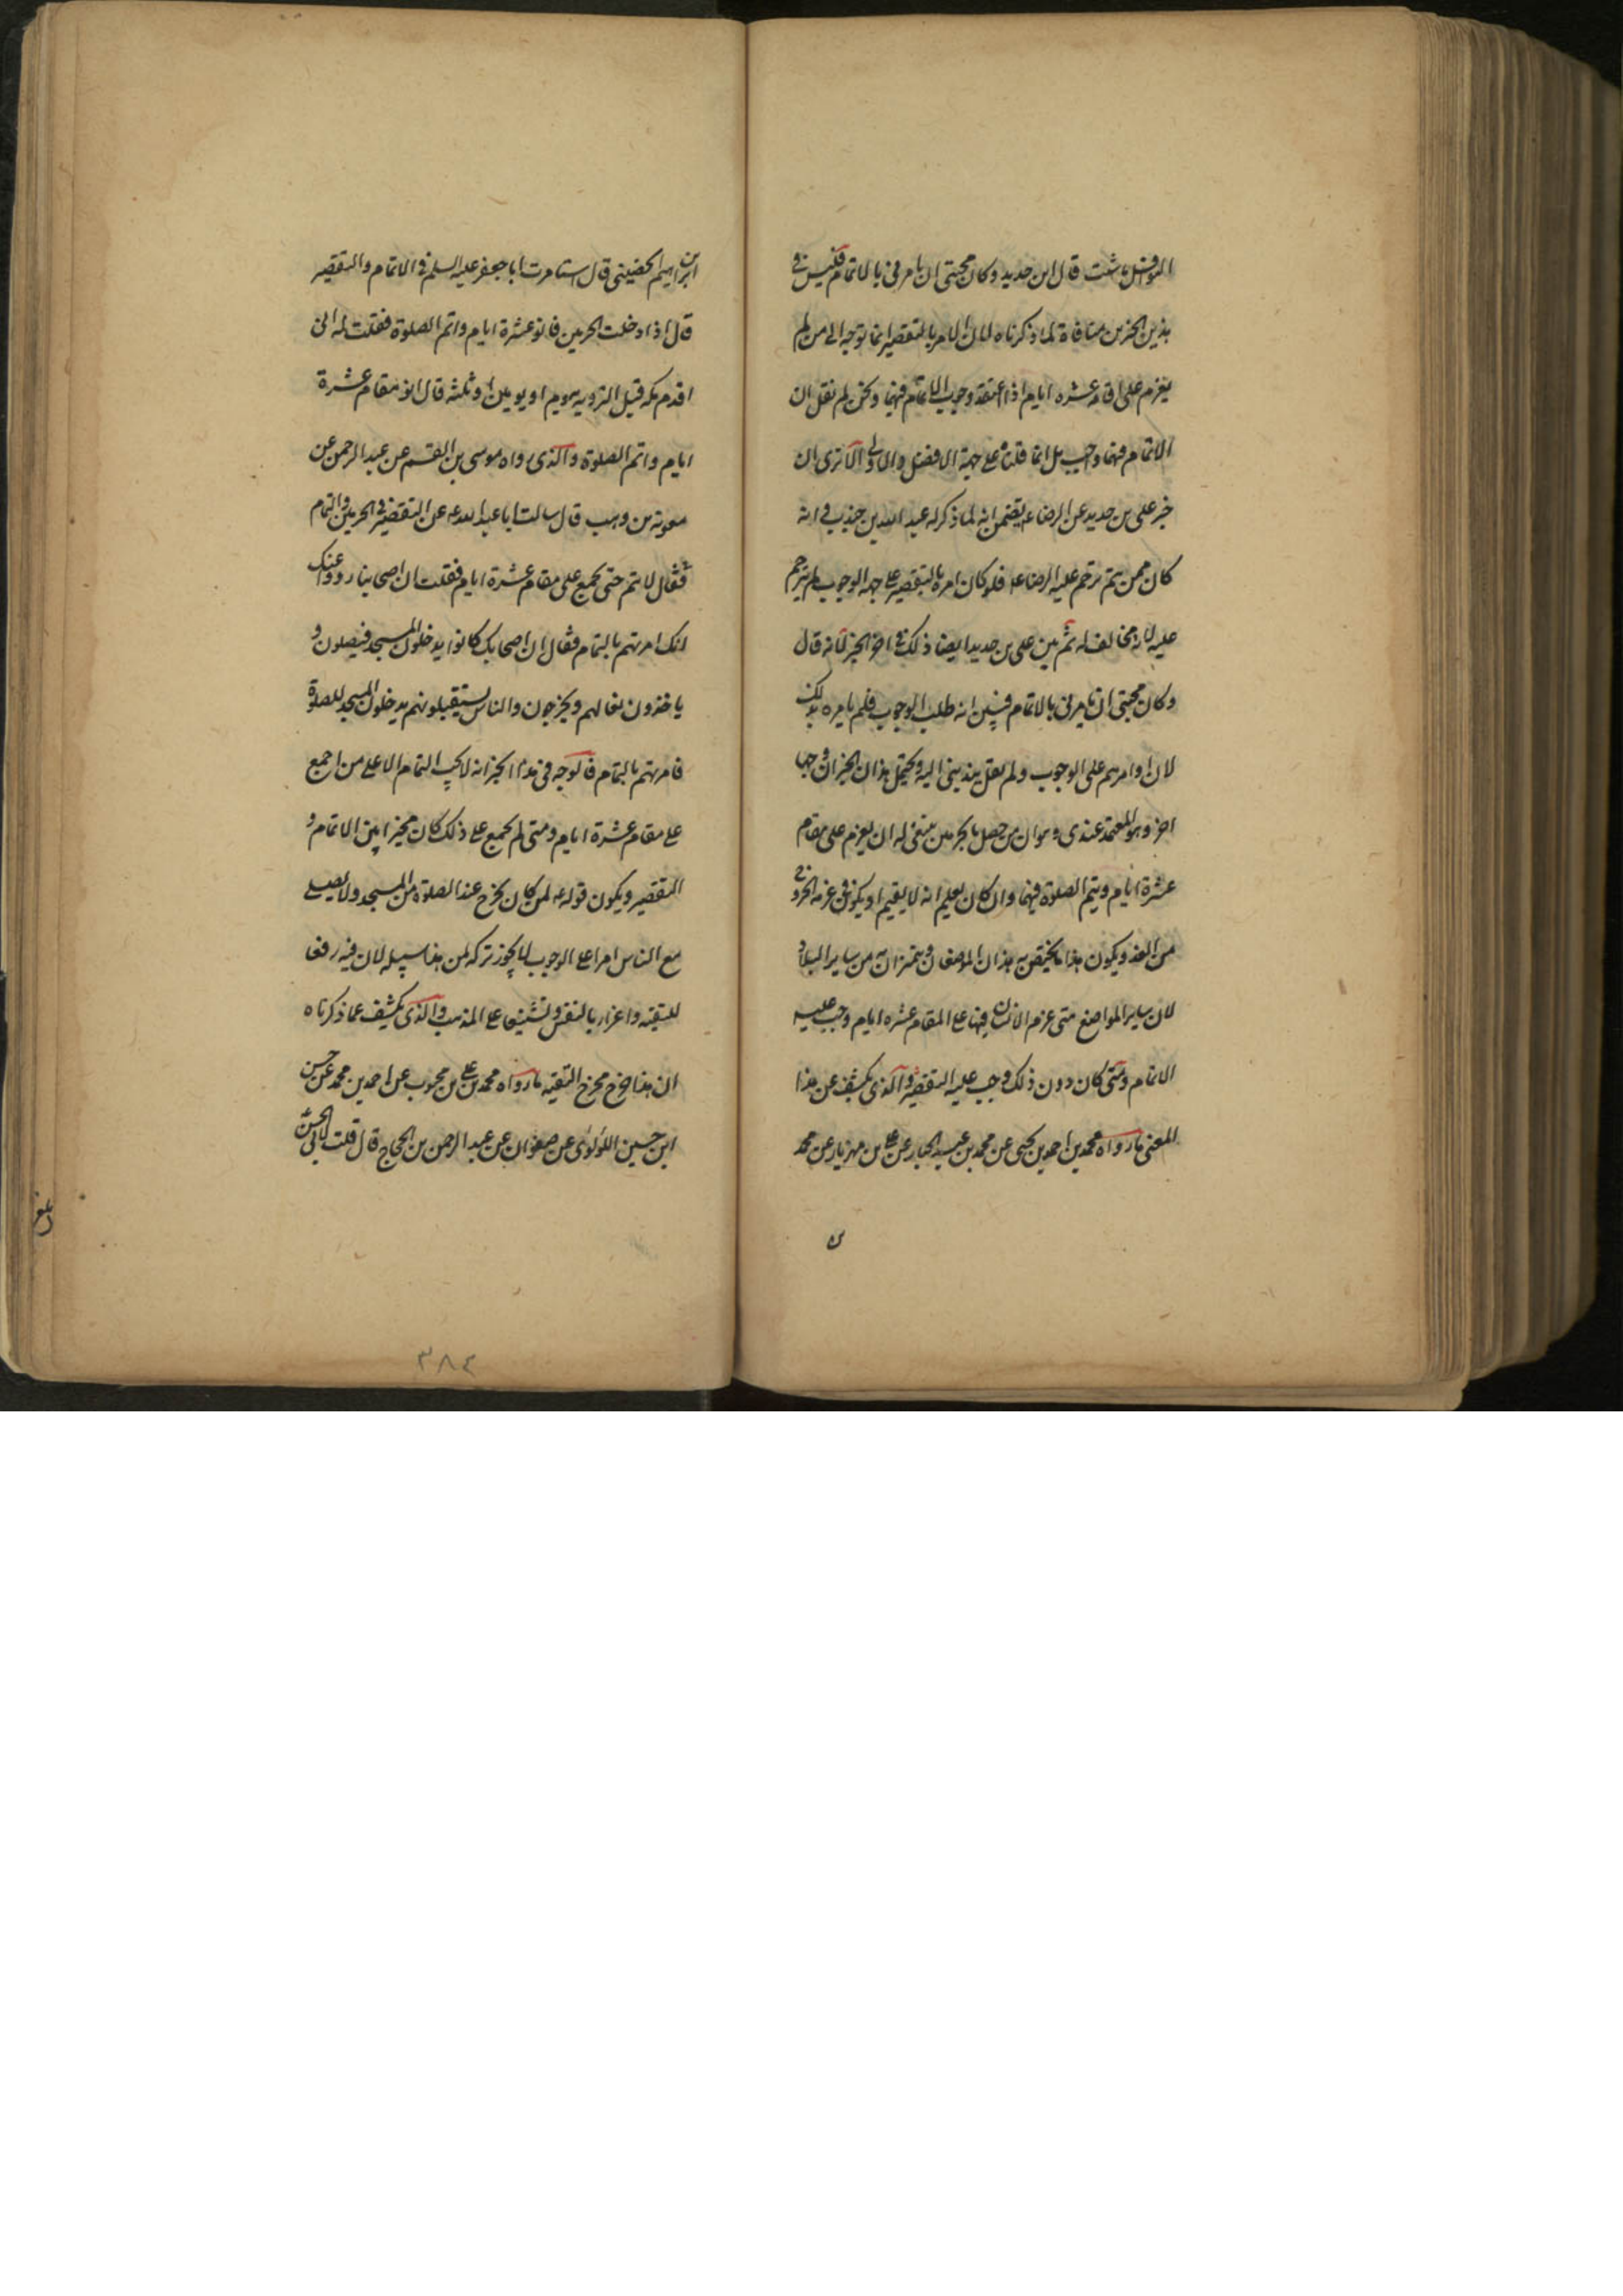 النوافل ما شئت قال ابن حديد وكان محبتى ان يامرنى بالاتمام فليس فى
هذين الخبرين منافاة لما ذكرناه لان الامر بالتقصير انما توجه الى من لم
يعزم على اقامة عشره ايام اذا اعتقد وجوب الاتمام فيهما ونحن لم نقل ان
الاتمام فيهما واجب بل انما قلناه على جهة الافضل والاولى الا ترى ان
خبر على بن حديد عن الرضا عه يتضمن انه لما ذكر له عبد الله بن جندب فى انه
كان ممن يتم ترحم عليه الرضا عه فلو كان امره بالتقصير على جهه الوجوب لم يترحم
عليه لانه مخالف له ثم بين على بن حديد ايضا ذلك فى اخر الخبر لانه قال
وكان محبتى ان يامرنى بالاتمام فبين انه طلب الوجوب فلم يامره بذلك
لان اوامرهم على الوجوب ولم يقل يندبنى اليه ويحتمل هذان الخبران وجها
اخر وهو المعتمد عندى وهو ان من حصل بالحرمين ينبغى له ان يعزم على مقام
عشرة ايام ويتم الصلوة فيهما وان كان يعلم انه لا يقيم او يكون فى عزمه الخروج
من الغد ويكون هذا ما يختص به هذان الموضعان ويتميزان به من ساير البلاد
لان ساير المواضع متى عزم الانسان فيها على المقام عشره ايام وجب عليه
الاتمام ومتى كان دون ذلك وجب عليه التقصير والذى يكشف عن هذا
المعنى ما رواه محمد بن احمد بن يحيى عن محمد بن عبد الجبار عن على بن مهزيار عن محمد
بن ابراهيم الحضينى قال استامرت ابا جعفر عليه السلم فى الاتمام والتقصير
قال اذا دخلت الحرمين فانو عشرة ايام واتم الصلوة فقلت له انى
اقدم مكه قبل الترويه بيوم او يومين او ثلثه قال انو مقام عشرة
ايام واتم الصلوة والذى رواه موسى بن القسم عن عبد الرحمن عن
معويه بن وهب قال سالت ابا عبد الله عه عن التقصير فى الحرمين والتمام
فقال لا يتم حتى تجمع على مقام عشرة ايام فقلت ان اصحابنا رووا عنك
انك امرتهم بالتمام فقال ان اصحابك كانوا يدخلون المسجد فيصلون و
ياخذون نعالهم ويخرجون والناس يستقبلونهم يدخلون المسجد للصلوة
فامرتهم بالتمام فالوجه فى هذا الخبر انه لا يجب التمام الا على من اجمع
على مقام عشرة ايام ومتى لم يجمع على ذلك كان مخيرا بين الاتمام و
التقصير ويكون قوله عه لمن كان يخرج عند الصلوة من المسجد ولا يصلى
مع الناس امرا على الوجوب لا يجوز تركه لمن هذا سبيله لان فيه رفعا
للتقيه واغرار بالنفس وتشنيعا على المذهب والذى يكشف عما ذكرناه
ان هذا خرج مخرج التقيه ما رواه محمد بن على بن محبوب عن احمد بن محمد عن حسن
ابن حسين اللؤلوى عن صفوان عن عبد الرحمن بن الحجاج قال قلت لابى الحسن
بلغ
٣٨٤